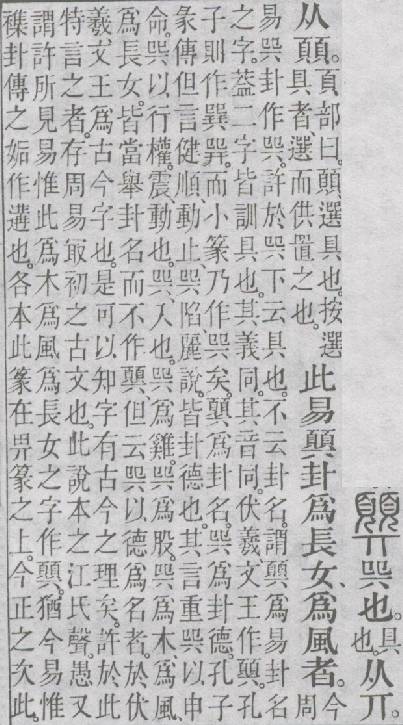 顨巺也。具也。从丌。
从⿰頁頁。頁部曰。⿰頁頁、選具也。按選
具者、選而供置之也。
此易顨卦爲長女、爲風者。今周
易巺卦作巺。許於巺下云具也。不云卦名。謂顨爲易卦名
之字。葢二字皆訓具也。其義同。其音同。伏羲文王作顨。孔
子則作巽。而小篆乃作巺矣。顨爲卦名。巺爲卦德。孔子
彖傳但言健順動止巺陷麗說。皆卦德也。其言重巺以申
命。巺以行權。震、動也。巺、入也。巺爲雞。巺爲股。巺爲木爲風
爲長女。皆當舉卦名而不作顨。但云巺以德爲名者。於伏
羲文王爲古今字也。是可以知字有古今之理矣。許於此
特言之者。存周易㝡初之古文也。此說本之江氏聲。愚又
謂許所見易惟此爲木爲風爲長女之字作顨。猶今易惟
襍卦傳之姤作遘也。各本此篆在畀篆之上。今正之次此。